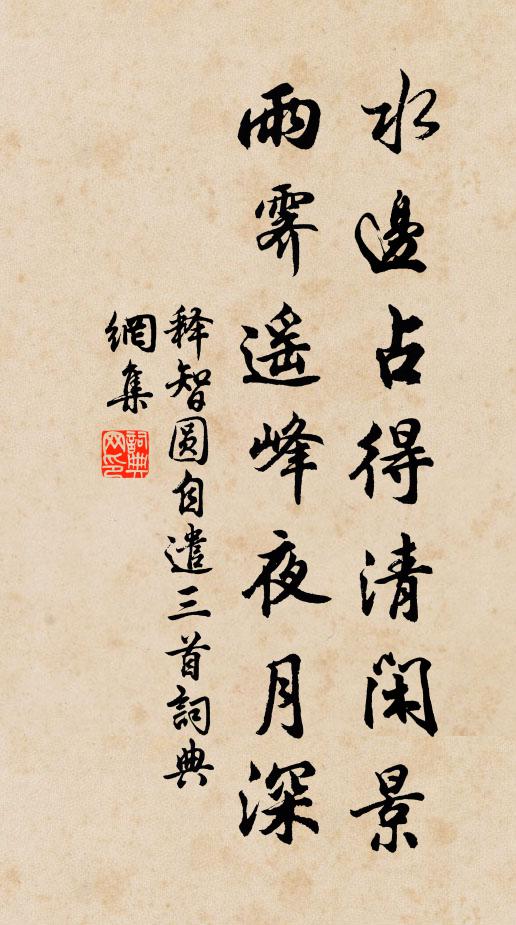 水邊占得清閑景
雨霽遥峰夜月深
释智圆自遣三首詞典
網集
詞典
网印